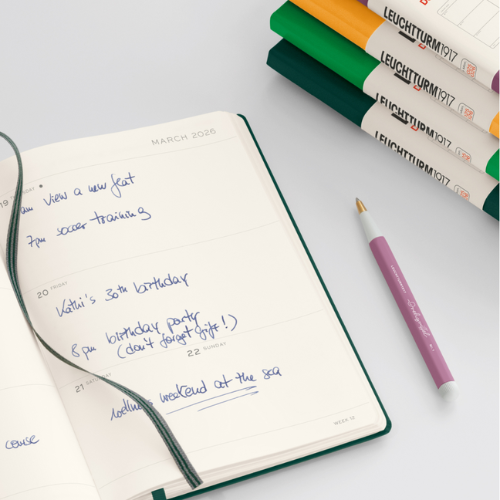 MARCH 2026
19
am view a new flat
7pm soccer training
20 FRIDAY
Kathi's 30th birthday
8 pm birthday party
(don't forget gift!)
22 SUNDAY
21 SATURDAY
weekend at the sea
course
WEEK 12
LEUCHTTURM1917
LEUCHTTURM1917
LEUCHTTURM1917
LEUCHTTURM1917